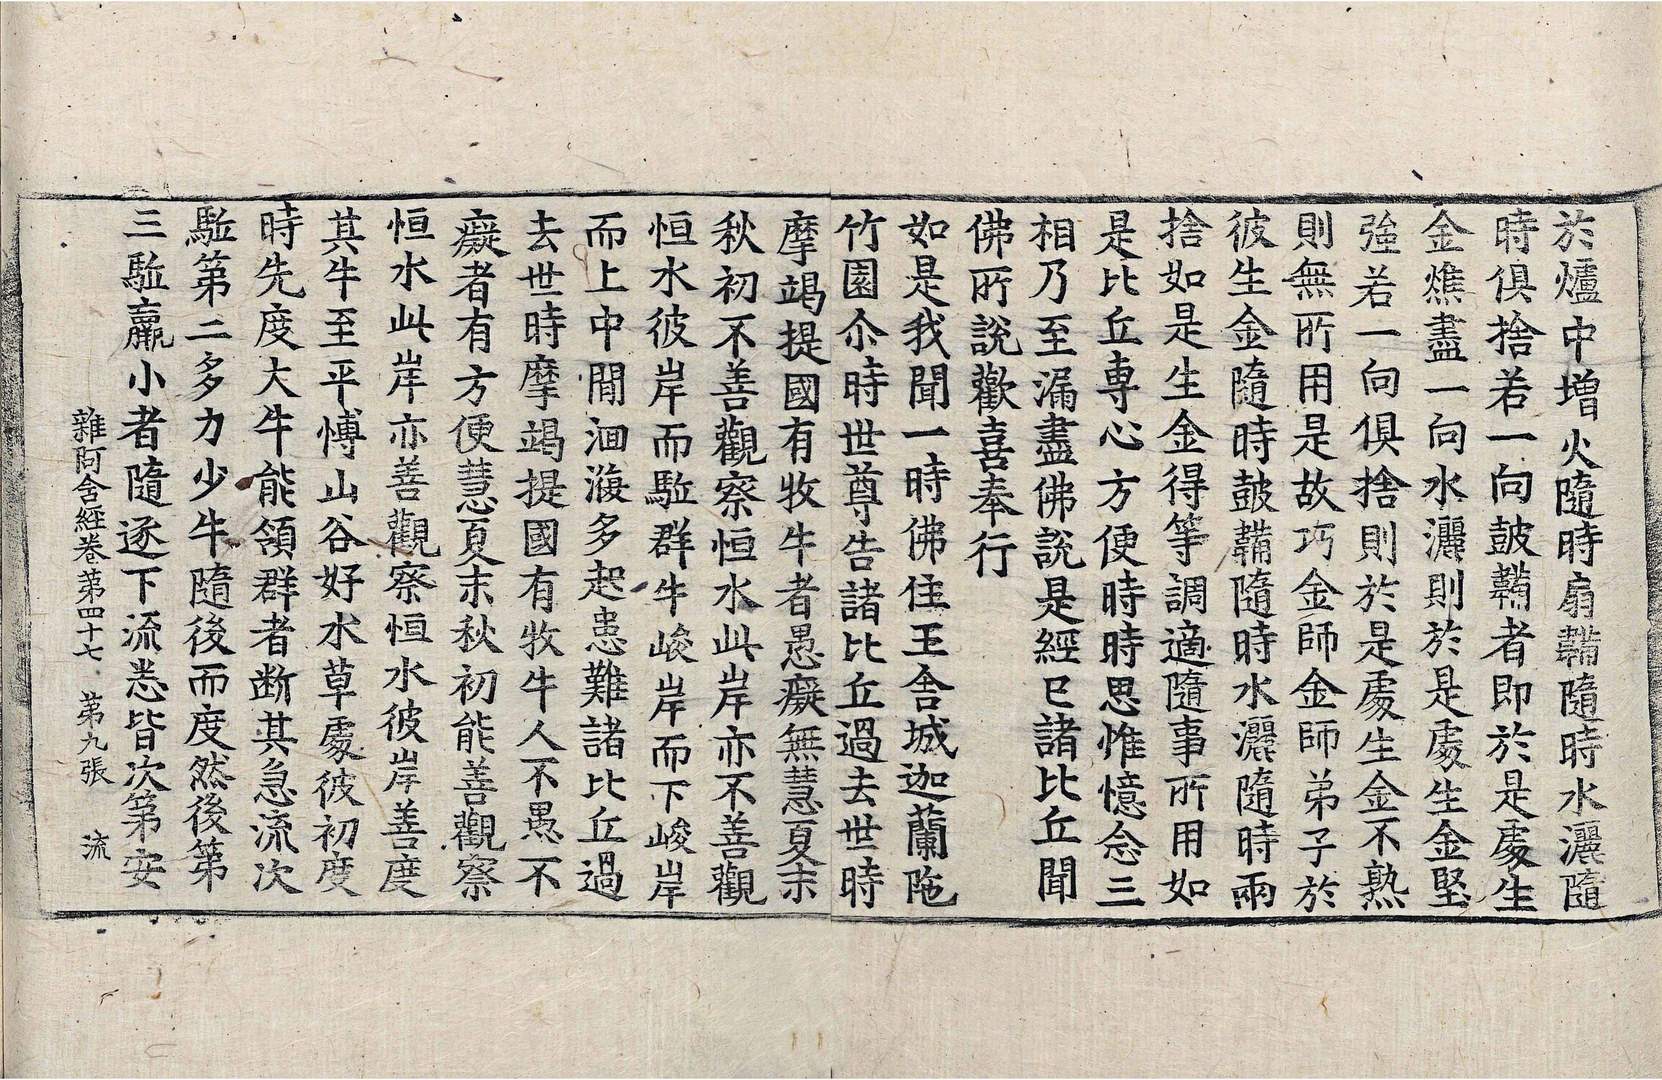 於爐中增火隨時扇韛隨時水灑隨
時俱捨若一向鼓韛者即於是處生
金燋盡一向水灑則於是處生金堅
強若一向俱捨則於是處生金不熟
則無所用是故巧金師金師弟子於
彼生金隨時鼓韛隨時水灑隨時兩
捨如是生金得等調適隨事所用如
是比丘專心方便時時思惟憶念三
相乃至漏盡佛說是經已諸比丘聞
佛所說歡喜奉行
如是我聞一時佛住王舍城迦蘭陁
竹園尒時世尊告諸比丘過去世時
摩竭提國有牧牛者愚癡無慧夏末
秋初不善觀察恒水此岸亦不善觀
恒水彼岸而駈群牛峻岸而下峻岸
而上中間洄澓多起患難諸比丘過
去世時摩竭提國有牧牛人不愚不
癡者有方便慧夏末秋初能善觀察
恒水此岸亦善觀察恒水彼岸善度
其牛至平博山谷好水草處彼初度
時先度大牛能領群者断其急流次
駈第二多力少牛隨後而度然後第
三駈羸小者隨逐下流悉皆次第安
雜阿含經卷第四十七 第九張 流